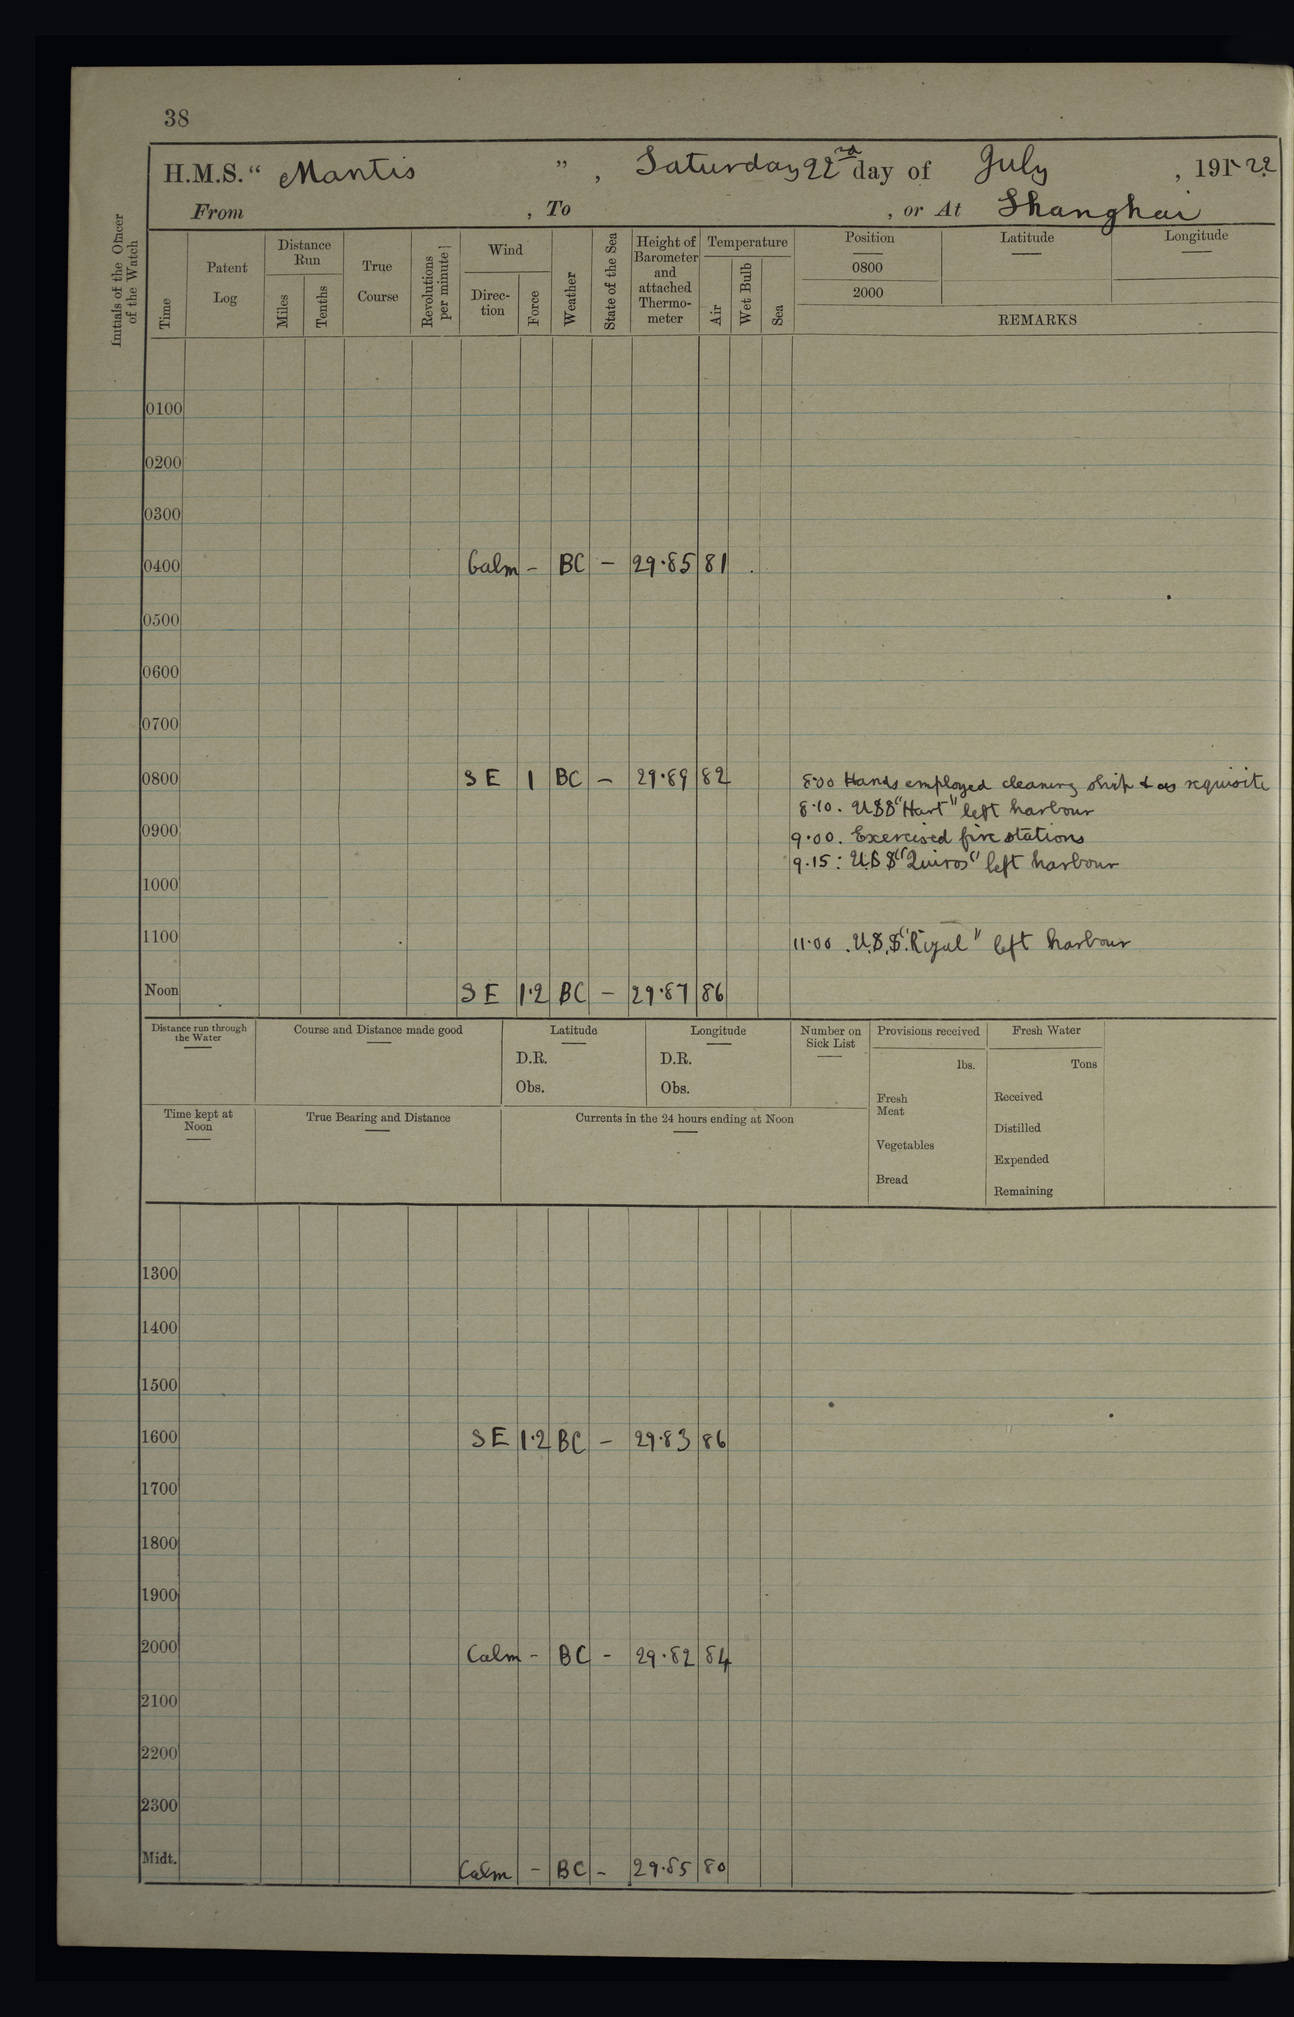 38
H.M.S. “ Mantis ”, Saturday 22nd day of July, 1915 22
From , To , or At Shanghai
Initials of the Officer of the Watch
Time
Patent Log
Distance Run
Miles
Tenths
True Course
Revolutions per minute
Wind
Direc- tion
Force
Weather
State of the Sea
Height of Barometer and attached Thermo- meter
Temperature
Air
Wet Bulb
Sea
Position
0800
2000
Latitude
Longitude
REMARKS
0100
0200
0300
0400 Calm - BC - 29.85 81
0500
0600
0700
0800 SE 1 BC - 29.89 82 8.00 Hands employed cleaning ship & as requisite
8.10. USS "Hart" left harbour
0900 9.00. Exercised fire stations
9.15: USS "Quiros" left harbour
1000
1100 11.00 . U.S.S. "Rizal" left harbour
Noon SE 1.2 BC - 29.87 86
Distance run through the Water
Course and Distance made good
Latitude
D.R.
Obs.
Longitude
D.R.
Obs.
Number on Sick List
Provisions received
lbs.
Fresh Meat
Vegetables
Bread
Fresh Water
Tons
Received
Distilled
Expended
Remaining
Time kept at Noon
True Bearing and Distance
Currents in the 24 hours ending at Noon
1300
1400
1500
1600 SE 1.2 BC - 29.83 86
1700
1800
1900
2000 Calm - BC - 29.82 84
2100
2200
2300
Midt. Calm - BC - 29.85 80